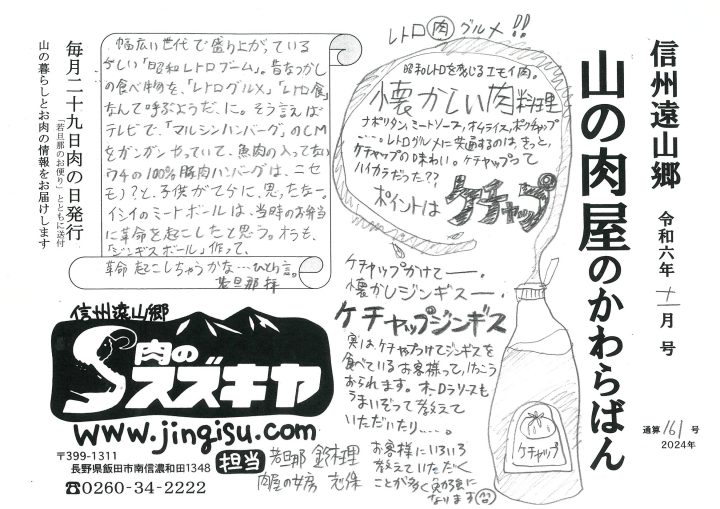 信州遠山郷
令和六年 十一月 号
山の肉屋のかわらばん
通算 161 号
2024年
レトロ肉グルメ!!
昭和レトロを感じるエモイ肉。
懐かしい肉料理
ナポリタン、ミートソース、オムライス、ポークチャップ
・・・・。レトログルメに共通するのは、きっと、
ケチャップの味わい。ケチャップって
ハイカラだった??
ポイントは
ケチャップ
ケチャップかけて――、
懐かしジンギス――、
ケチャップジンギス
実は、ケチャップつけてジンギスを
食べているお客様って、けっこう
おられます。オーロラソースも
うまいぞって教えて
いただいたり・・・・。
お客様にいろいろ
教えていただく
ことが多く勉強に
なります
ケチャップ
幅広い世代で盛り上がっている
らしい「昭和レトロブーム」。昔なつかし
の食べ物を、「レトログルメ」「レトロ食」
なんて呼ぶようだ、に。そう言えば
テレビで、「マルシンハンバーグ」のCM
をガンガンやっていて、魚肉の入ってない
ウチの100%豚肉ハンバーグは、ニセ
モノ?と、子供がてらに、思ったなー。
イシイのミートボールは、当時のお弁当
に革命を起こしたと思う。オラも、
「ジンギスボール」作って、
革命起こしちゃうかな…ひとり言。
若旦那 拝
毎月二十九日肉の日発行
「若旦那のお便り」とともに送付
山の暮らしとお肉の情報をお届けします
信州遠山郷
肉の
スズキヤ
www.jingisu.com
〒399-1311
長野県飯田市南信濃和田1348
☎0260-34-2222
担当
若旦那 鈴木理
肉屋の女房 志保